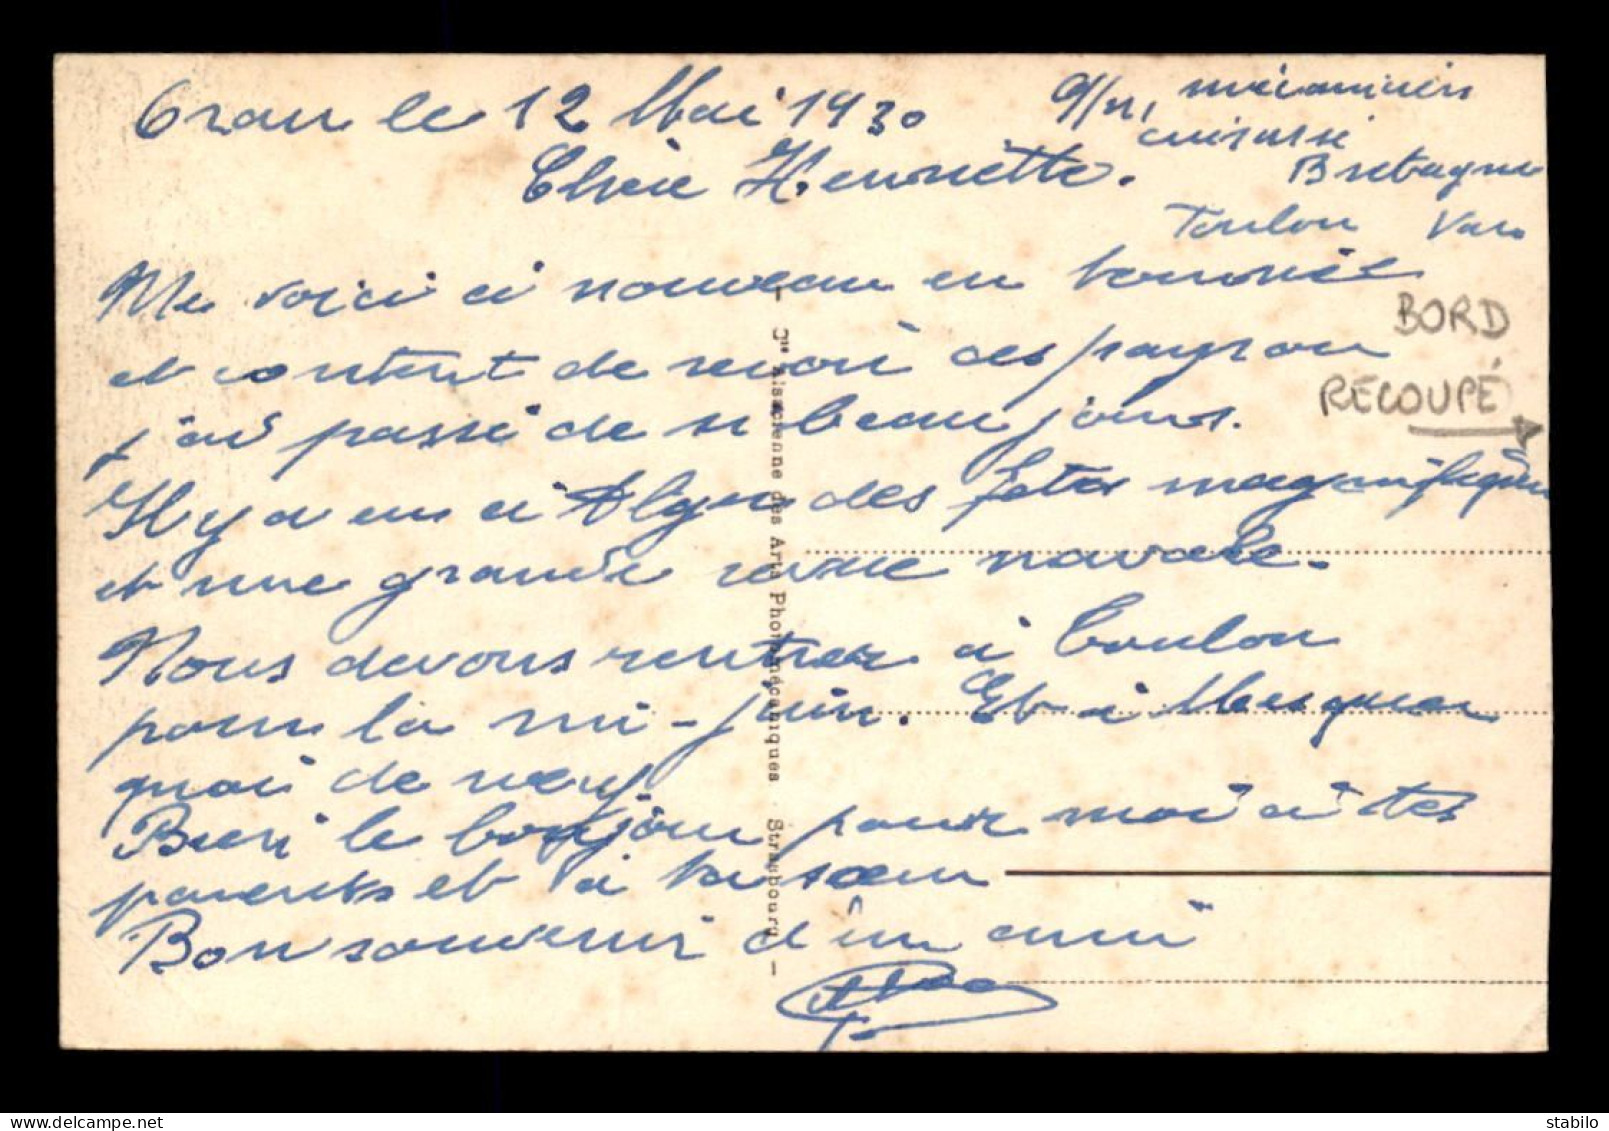 Oran le 12 Mai 1930
mécanicien
cuirassé
Bretagne
Toulon Var
Chère Henriette.
Me voici à nouveau en tournée
et content de revoir ces pays ou
j'ai passé de si beau jours.
BORD
RECOUPÉ
Il y a eu à Alger des fetes magnifiques
et une grande revue navale.
Nous devons rentrer à Toulon
pour la mi-juin. Et à Mesquer
quoi de neuf
Bien le bonjour pour moi à tes
parents et à ta sœur
Bon souvenir d'un ami
- Cie Alsacienne des Arts Photomécaniques - Strasbourg -
www.delcampe.net
stabilo